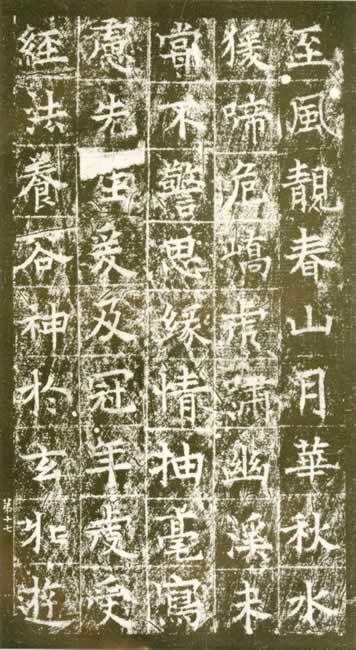 至風靚春山月華秋水
猨啼危嶠虎嘯幽溪未
嘗不警思緣情抽毫寫
慮先生爰及冠年虔受
經法養谷神於玄牝遊
第十七